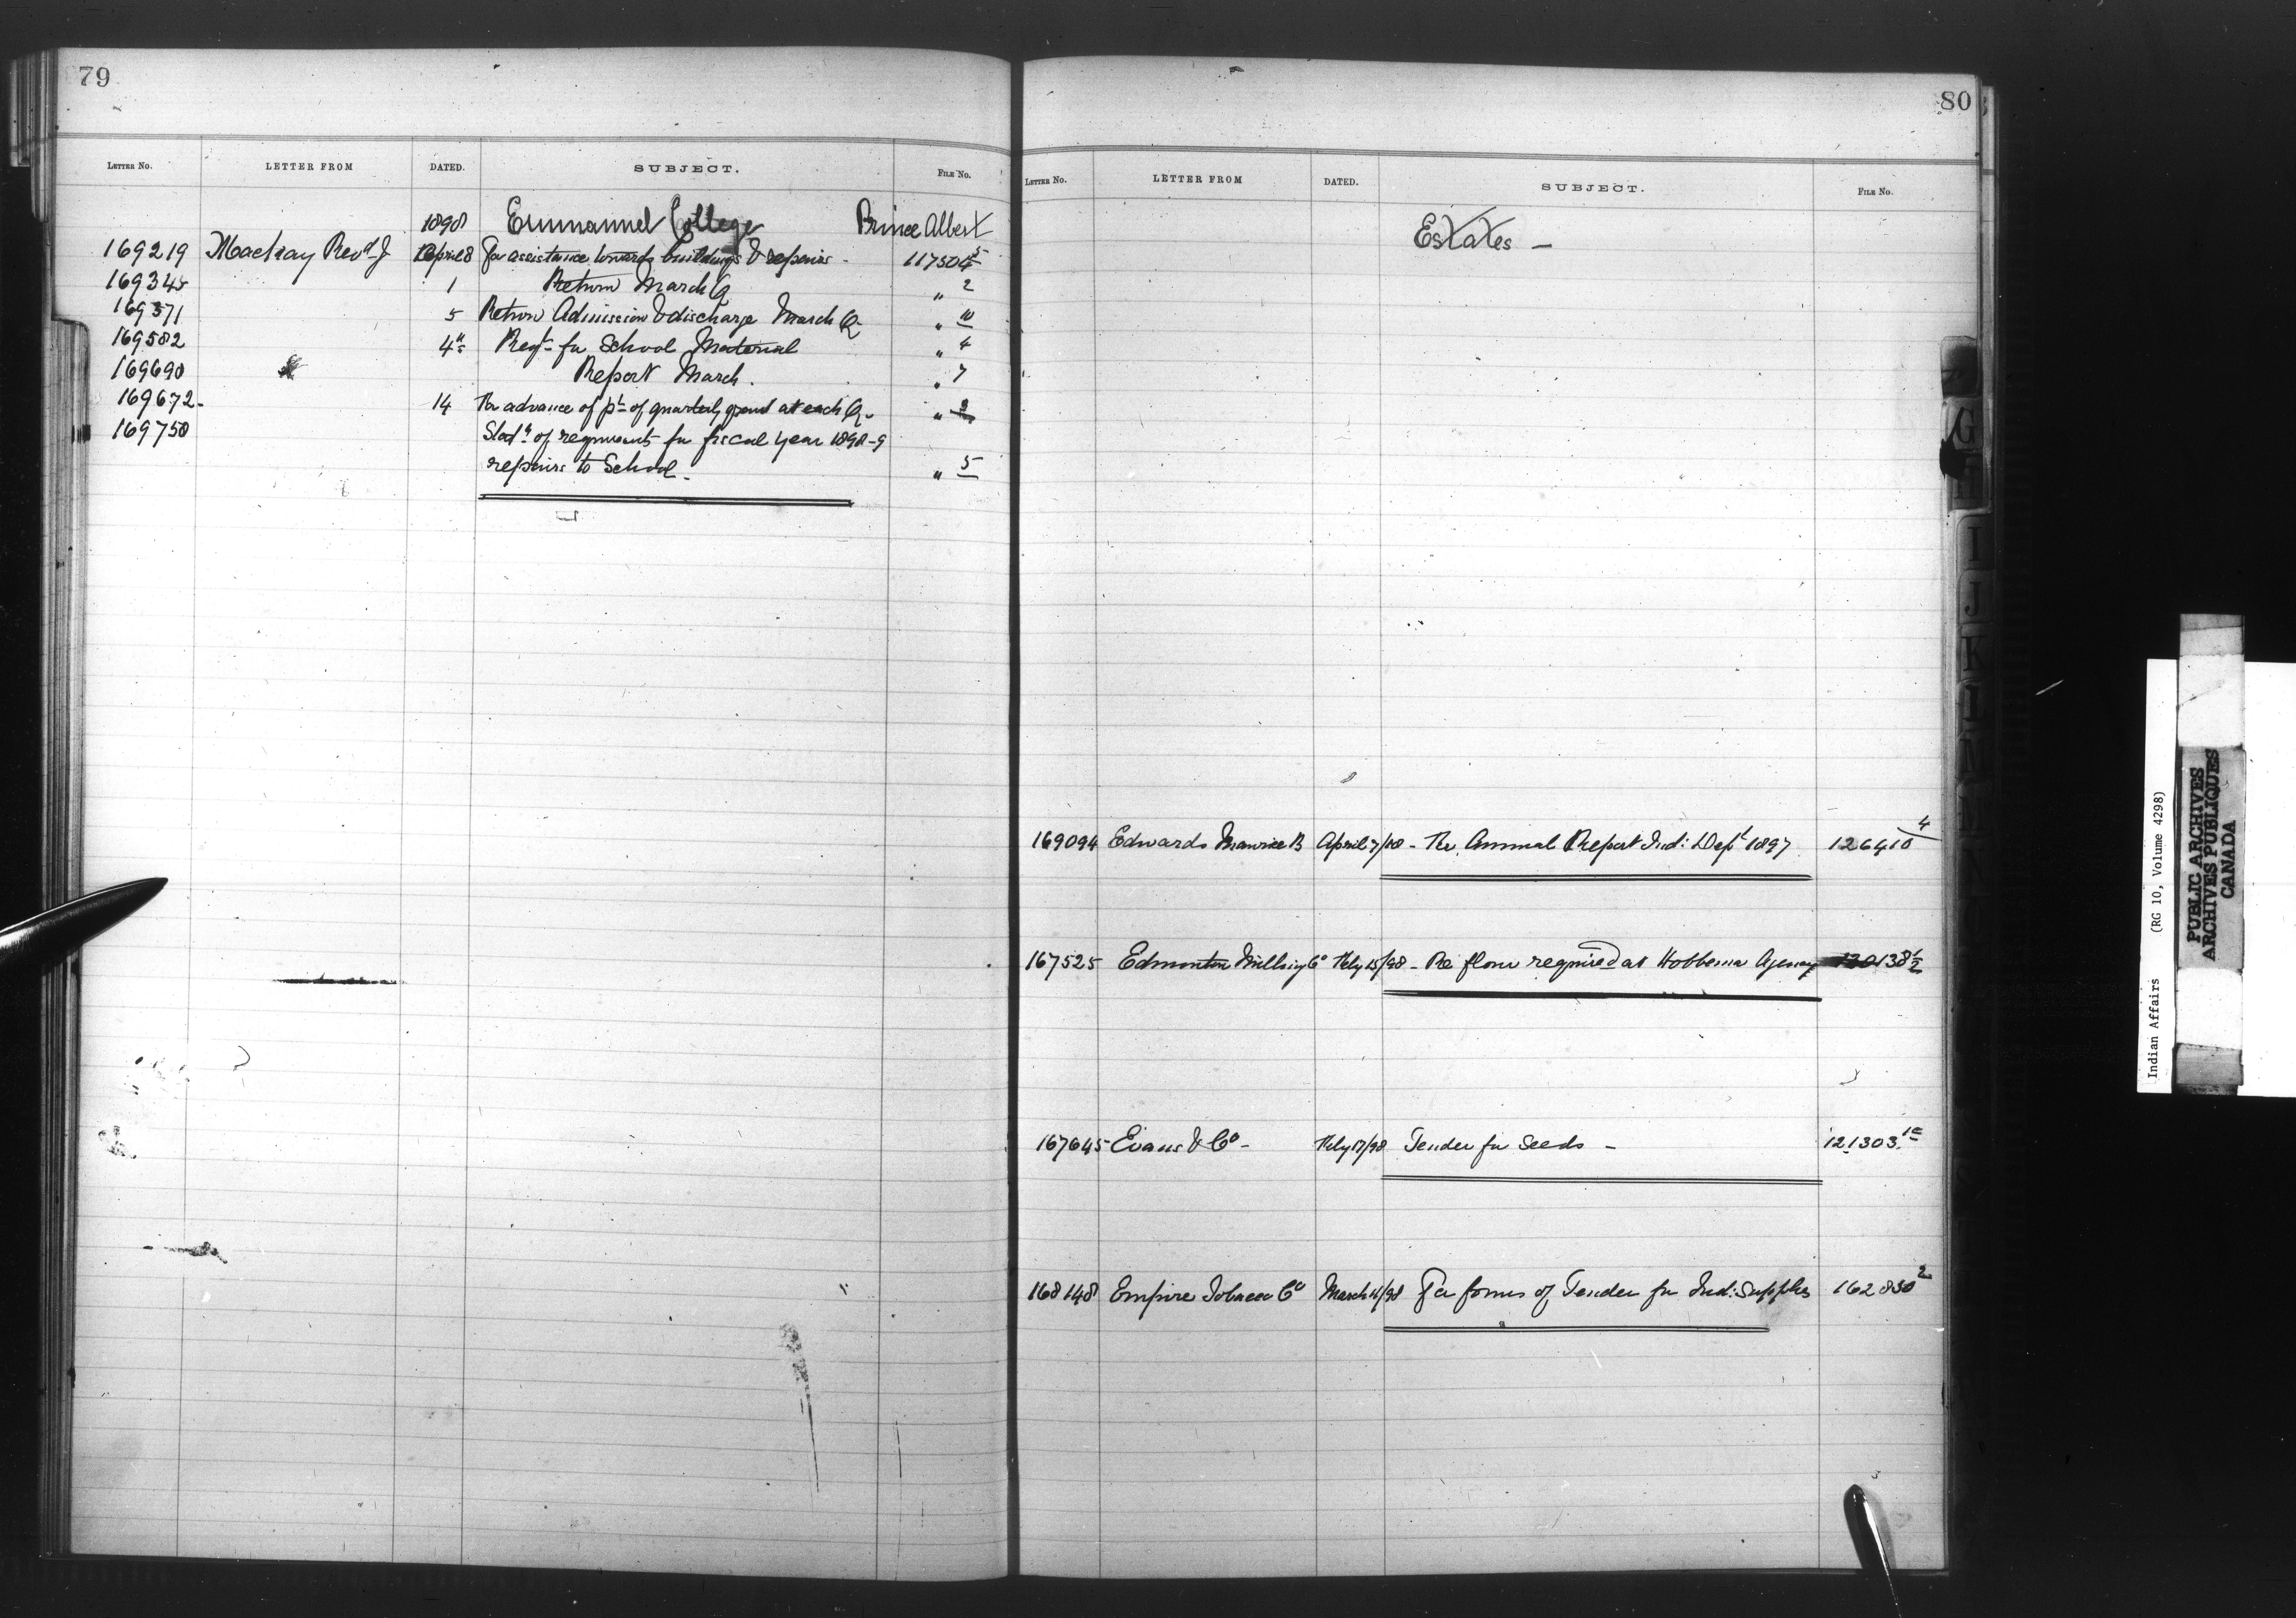 79
LETTER NO. LETTER FROM DATED. SUBJECT. FILE NO.
1898 Emmanuel College Prince Albert
169219 Mackay Revd J April 8 For assistance towards buildings & repairs - 117504 5
169345 1 Return March Q " 2
169371 5 Return Admission & discharge March Q " 10
169582 4th Reqt for School Material " 4
169690 Report March. " 7
169672 - 14 Re advance of pt of quarterly grant at each Q - "
169750 of requirements for fiscal year 1898-9
repairs to School - " 5
80
LETTER NO. LETTER FROM DATED. SUBJECT. FILE NO.
Estates -
169094 Edwards Maurice B April 7/98 - Re Annual Report Ind: Dept 1897 126410 4
167525 Edmonton Milling Co Feby 15/98 - Re flour required at Hobbema Agency 138 1/2
167645 Evans & Co - Feby 17/98 Tender for Seeds - 121303 1a
168148 Empire Tobacco Co March /98 For forms of Tender for Ind: Supplies 162830 2
G
I
J
K
L
M
Indian Affairs (RG 10, Volume 4298)
PUBLIC ARCHIVES
ARCHIVES PUBLIQUES
CANADA